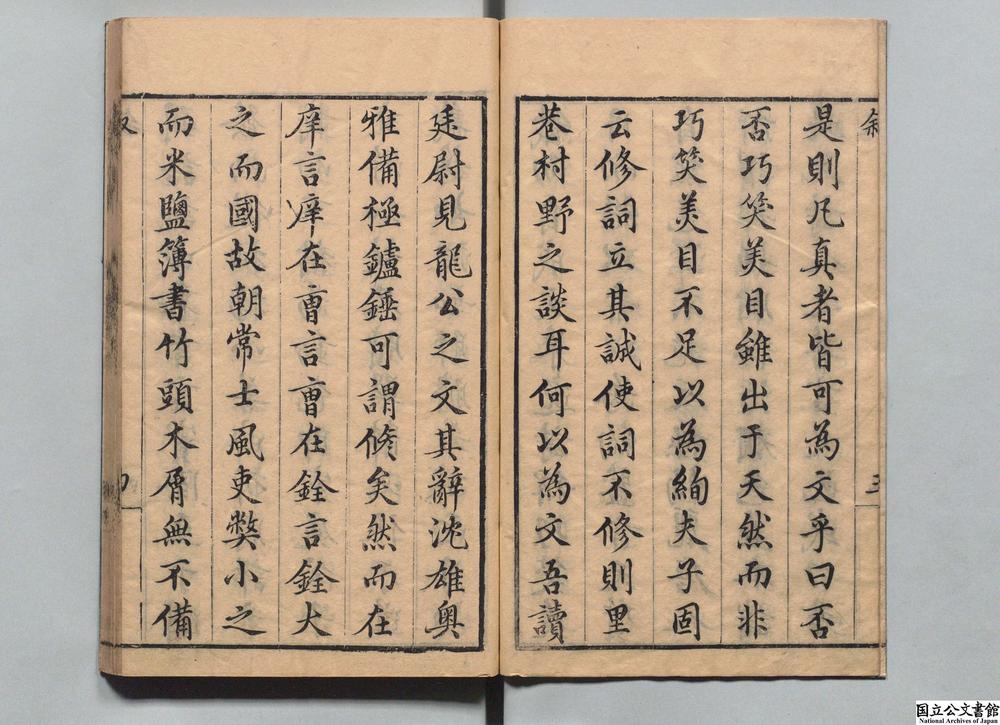 叙
三
是則凡真者皆可為文乎曰否
否巧笑美目雖出于天然而非
巧笑美目不足以為絢夫子固
云修詞立其誠使詞不修則里
巷村野之談耳何以為文吾讀
廷尉見龍公之文其辭沈雄奧
雅備極鑪錘可謂修矣然而在
庠言庠在曹言曹在銓言銓大
之而國故朝常士風吏弊小之
而米鹽簿書竹頭木屑無不備
国立公文書館
National Archives of Japan